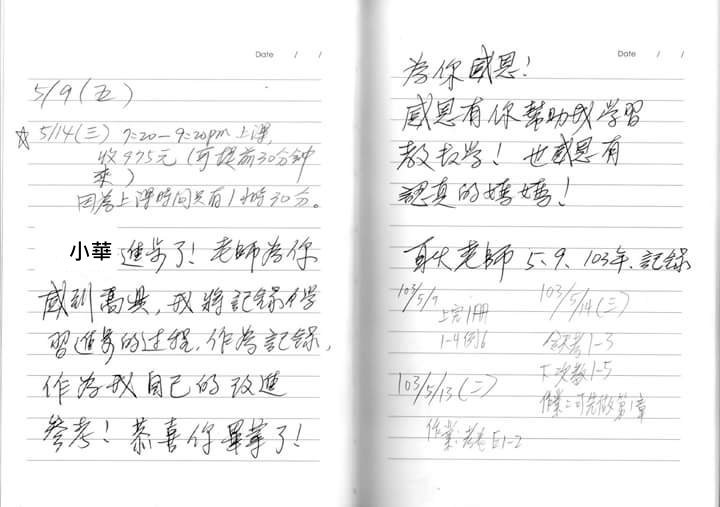 Date / /
5/9(五)
☆ 5/14(三) 7:20-9:20pm 上課,
收975元(可提前30分鐘
來)
因為上課時間只有1小時30分。
小華 進步了!老師為你
感到高興,我將記錄你學
習進步的过程,作為記錄,
作為我自己的改進
參考!恭喜你畢業了!
Date / /
為你感恩!
感恩有你幫助我學習
教数学!也感恩有
認真的媽媽!
老師 5、9、103年、記錄
103/5/9
上完1冊
1-4例6
103/5/13(二)
作業:考卷E1-2
103/5/14(三)
1-3
下次教1-5
作業:可先做第1章